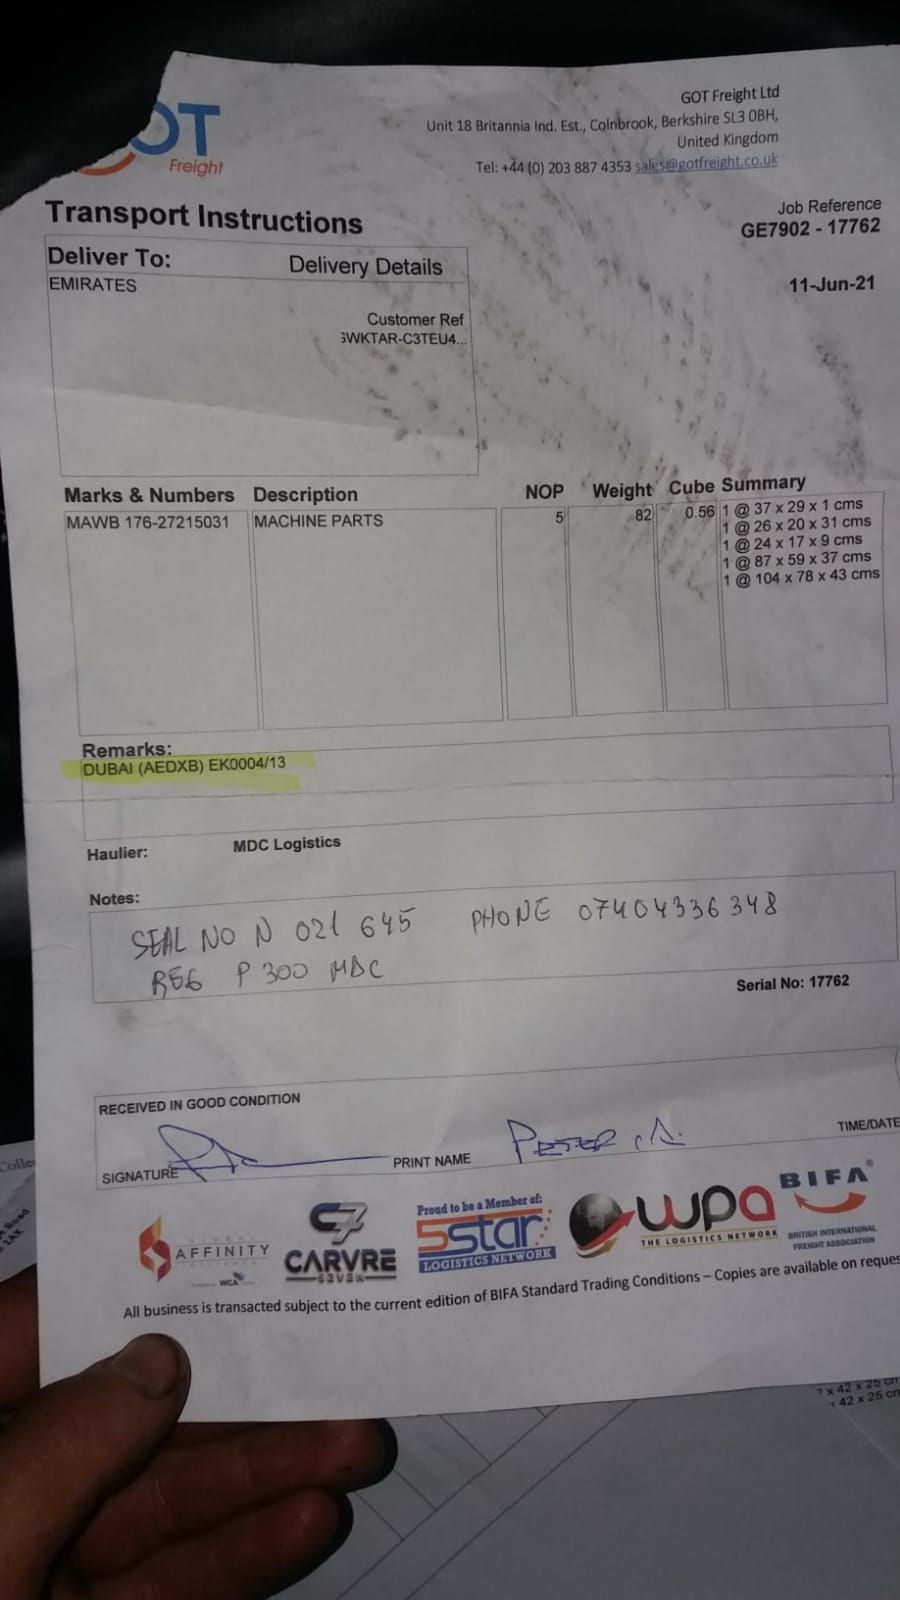 GOT
Freight
GOT Freight Ltd
Unit 18 Britannia Ind. Est., Colnbrook, Berkshire SL3 0BH,
United Kingdom
Tel: +44 (0) 203 887 4353 sales@gotfreight.co.uk
Transport Instructions
Job Reference
GE7902 - 17762
11-Jun-21
Deliver To: Delivery Details
EMIRATES
Customer Ref
GWKTAR-C3TEU4...
Marks & Numbers Description NOP Weight Cube Summary
MAWB 176-27215031 MACHINE PARTS 5 82 0.56 1 @ 37 x 29 x 1 cms
1 @ 26 x 20 x 31 cms
1 @ 24 x 17 x 9 cms
1 @ 87 x 59 x 37 cms
1 @ 104 x 78 x 43 cms
Remarks:
DUBAI (AEDXB) EK0004/13
Haulier: MDC Logistics
Notes:
SEAL NO N 021 645 PHONE 07404336348
REG P 300 MDC
Serial No: 17762
RECEIVED IN GOOD CONDITION
SIGNATURE PRINT NAME PETER .A. TIME/DATE
AFFINITY
WCA
C7
CARVRE
SEVEN
Proud to be a Member of:
5star
LOGISTICS NETWORK
wpa
THE LOGISTICS NETWORK
BIFA
BRITISH INTERNATIONAL
FREIGHT ASSOCIATION
All business is transacted subject to the current edition of BIFA Standard Trading Conditions – Copies are available on reques
Colle
Road
x 42 x 25 cm
x 42 x 25 cm